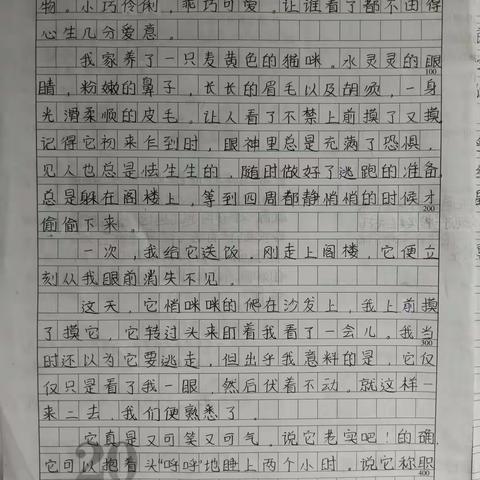 物。小巧伶俐，乖巧可爱。让谁看了都不由得
心生几分爱意。
我家养了一只麦黄色的猫咪。水灵灵的眼
100
睛，粉嫩的鼻子，长长的眉毛以及胡须，一身
光滑柔顺的皮毛。让人看了不禁上前摸了又摸
记得它初来乍到时，眼神里总是充满了恐惧，
见人也总是怯生生的，随时做好了逃跑的准备
总是躲在阁楼上，等到四周都静悄悄的时候才
200
偷偷下来。
一次，我给它送饭。刚走上阁楼，它便立
刻从我眼前消失不见。
这天，它悄咪咪的爬在沙发上，我上前摸
了摸它，它转过头来盯着我看了一会儿。我当
300
时还以为它要逃走，但出乎我意料的是，它仅
仅只是看了我一眼，然后伏着不动。就这样一
来二去，我们便熟悉了。
它真是又可笑又可气。说它老实吧！的确
它可以抱着头“呼呼”地睡上两个小时。说它称职
400
20